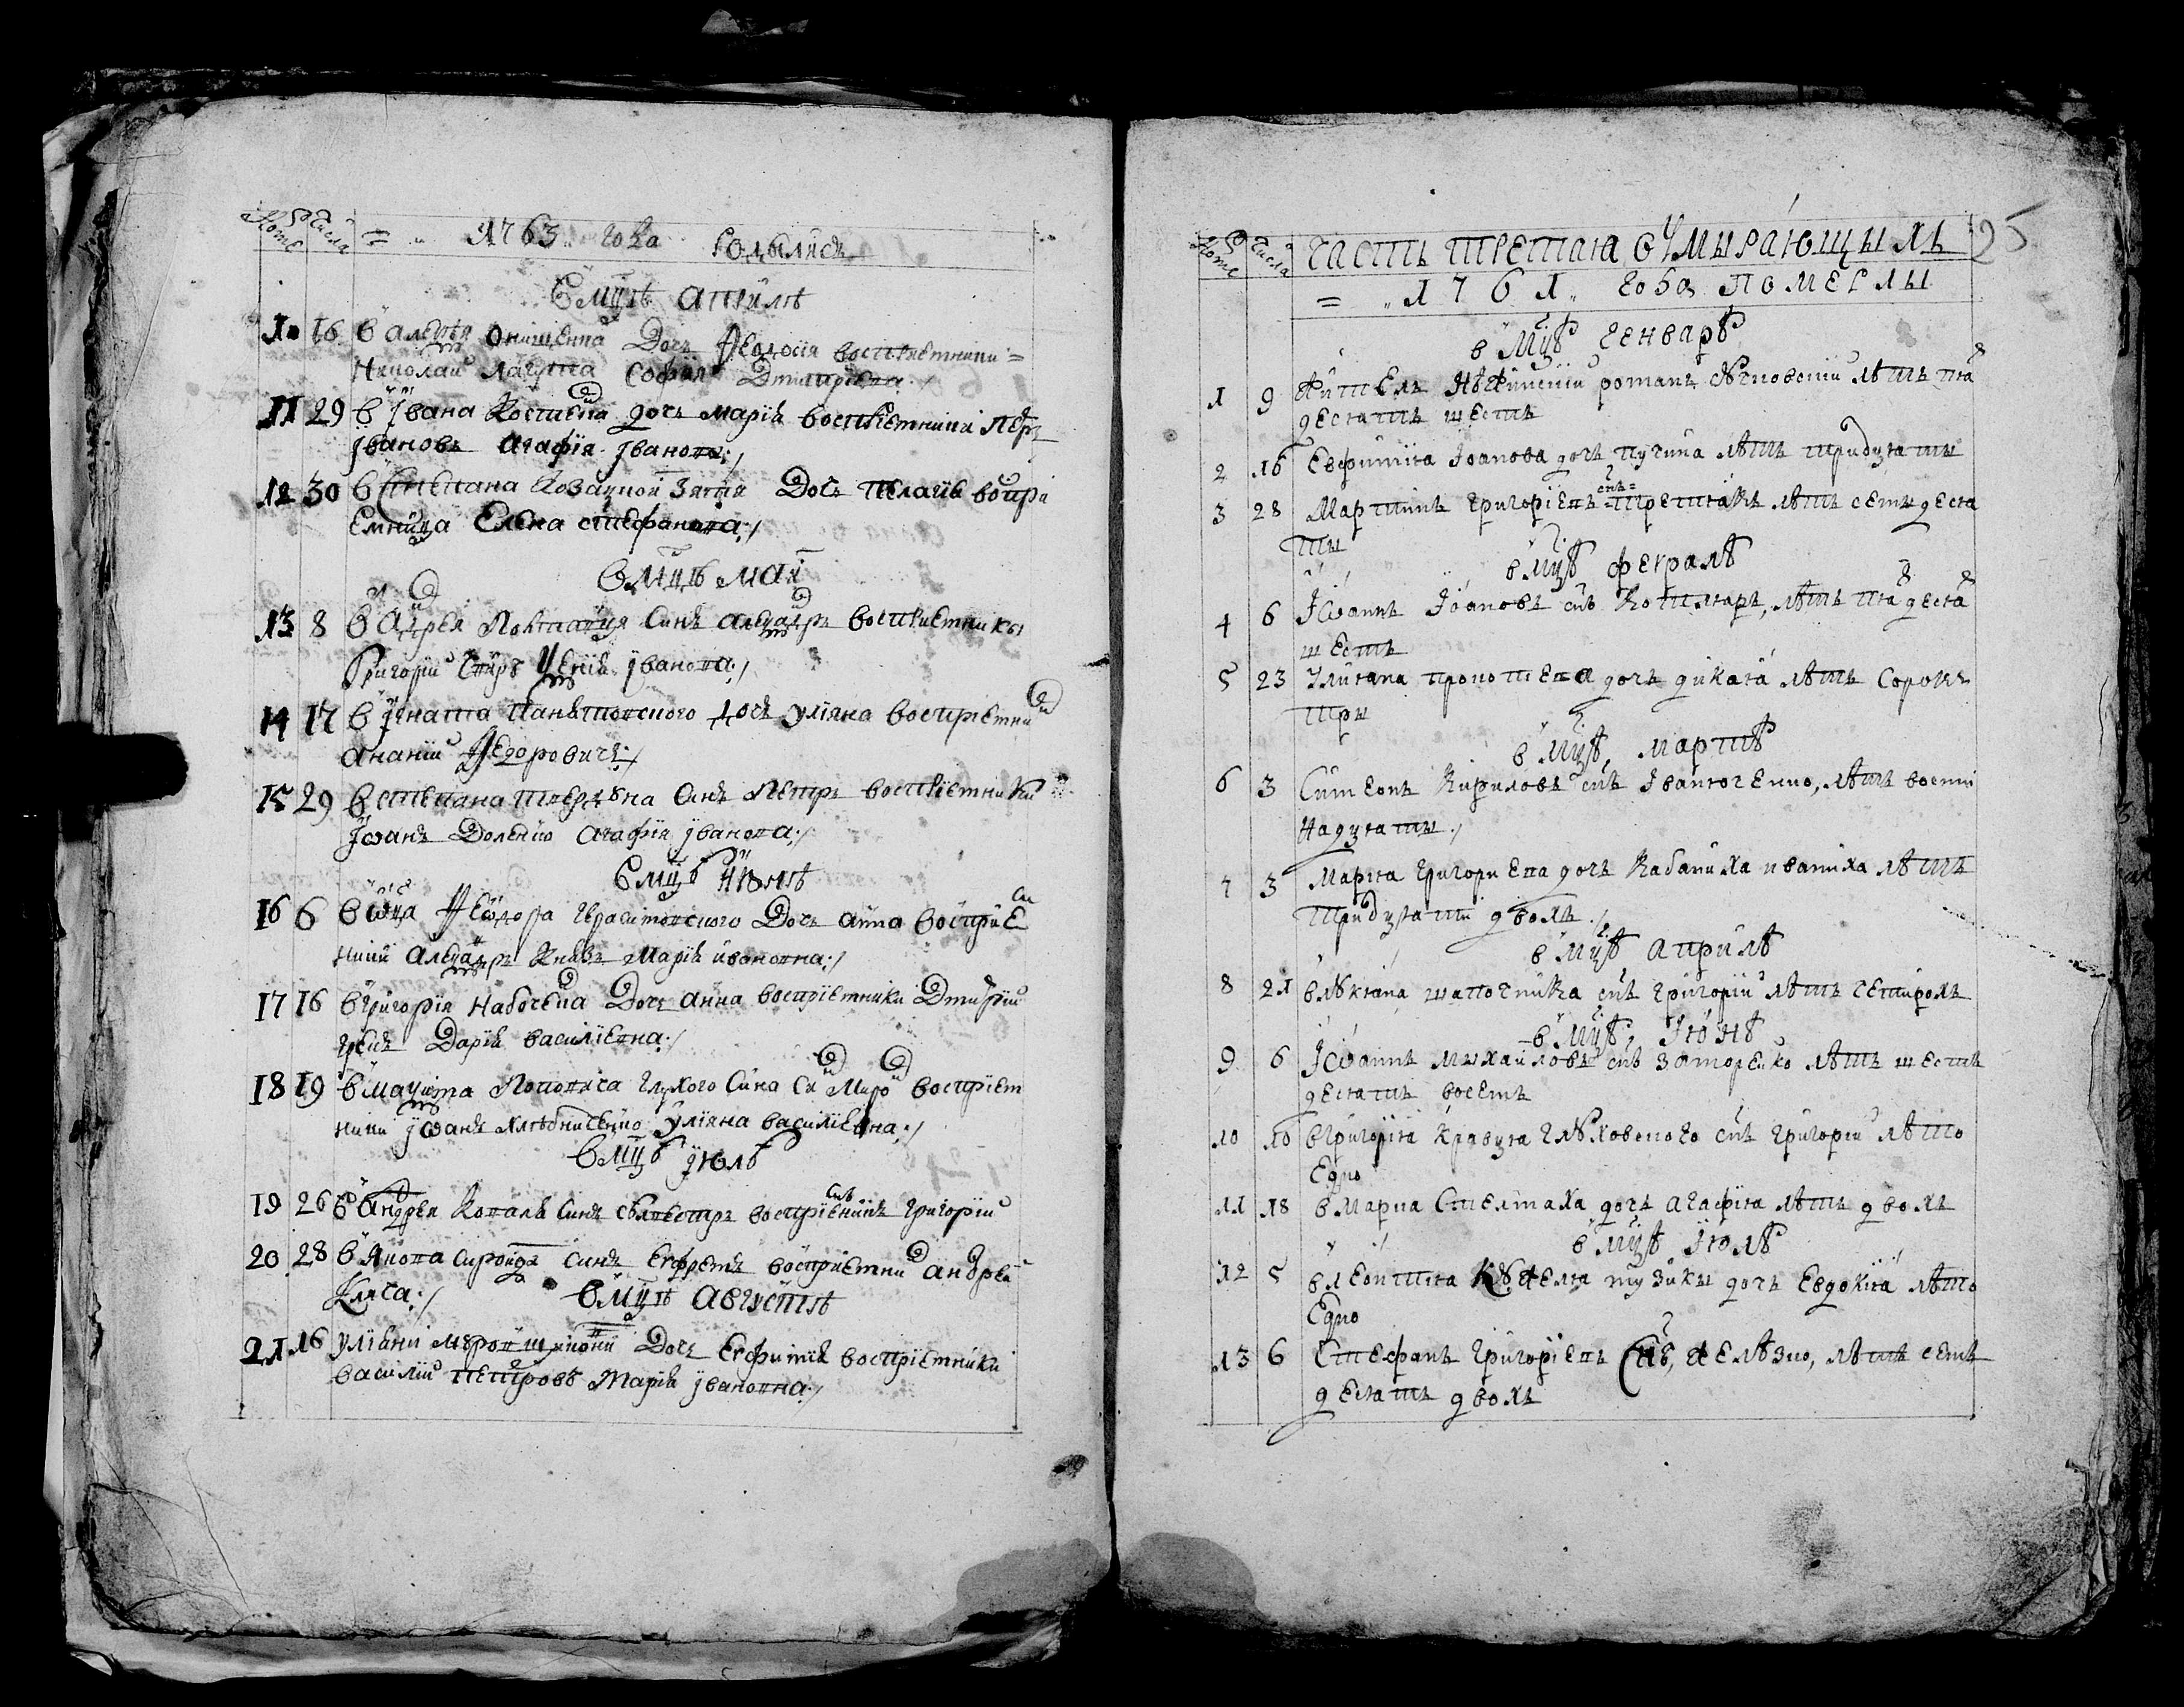 Номе Числа 1763 года родылися
В мцѣ априлѣ
10 16 В Онищенка Дочъ Феодосія восприемники
Николай Лагута София Дмитриева
11 29 В Iвана Костенка дочъ Марія восприемники Петръ
Iвановъ Агафія Iванова
12 30 В Степана Козацкой зятя Дочъ Пелагія воспри
емница Елена Стефанова
В мцѣ маи
13 8 В Андрея Синъ Александръ восприемники
Григорій Iванова
14 17 В Iгната дочъ Уліяна восприемникъ
Ананій Феодоровичъ
15 29 В Степана Синъ Петръ восприемники
Iоанъ Доленко Агафія Iванова
В мцѣ июнѣ
16 6 В отца Феодора Герасимовского Дочъ Анна восприем
ники Александръ Князь Марія Ивановна
17 16 В Григорія Набоченка Дочъ Анна восприемники Дмитрій
Дарія Василіевна
18 19 В Глухого Сина восприем
ники Iоанъ Хлѣбниченко Уліяна Василіевна
В мцѣ июлѣ
19 26 В Андрея Коваля Синъ Селвестръ восприемникъ Григорій
20 28 В Якова Сироида Синъ Ефремъ восприемникъ Андрей
Кляса
В мцѣ августѣ
21 16 Уліяни Дочъ Евфимія восприемники
Василій Петровъ Марія Iвановна
95
Номе Числа Часть третая о умырающыхъ
1761 года померлы
В мцѣ генварѣ
1 9 Житель нѣжинскій Романъ лѣтъ пять
десятъ шесть
2 16 Евфимія Iоанова дочъ Пугина лѣтъ тридцяты
3 28 Мартинъ Григоріевъ снъ Третякъ лѣтъ семьдеся
ты
В мцѣ февралѣ
4 6 Iоаннъ Iоановъ снъ Котляръ, лѣтъ пятдесятъ
шесть
5 23 Улияна Прокопіева дочъ Дикая лѣтъ сорокъ
тры
В мцѣ мартѣ
6 3 Симеонъ Кириловъ снъ Iванюченко, лѣтъ восми
надцяты
7 3 Марія Григориева дочъ Кабаниха Иваниха лѣтъ
тридцяти двохъ
В мцѣ априлѣ
8 21 В Лукіяна Шапочника снъ Григорій лѣтъ четирохъ
В мцѣ Iюнѣ
9 6 Iоаннъ Мыхайловъ снъ Заторейко лѣтъ шесть
десятъ восемъ
10 10 В Григорія Кравця Глуховского снъ Григорій лѣто
едно
11 18 В Марка Стелмаха дочъ Агафія лѣтъ двохъ
В мцѣ Iюлѣ
12 5 В Леонтія Кужеля музики дочъ Евдокія лѣто
едно
13 6 Стефанъ Григоріевъ снъ, Желѣзко, лѣтъ семъ
десятъ двохъ